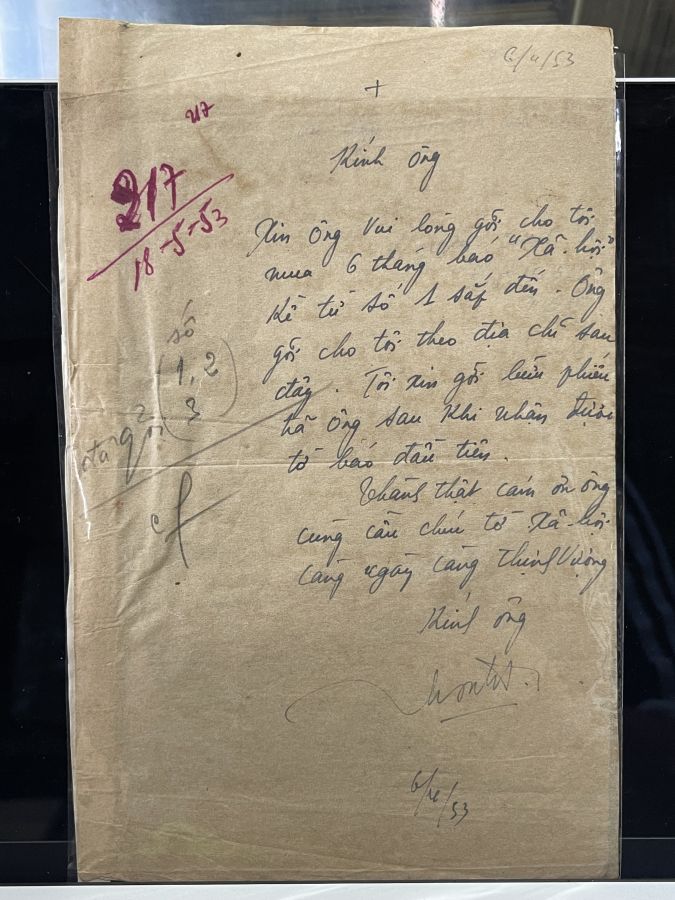 6/4/53
+
217
Kính ông
217
18-5-53
Xin ông vui lòng gởi cho tôi
mua 6 tháng báo "Xã-hội"
Kể từ số 1 sắp đến. Ông
gởi cho tôi theo địa chỉ sau
đây. Tôi xin gởi bưu phiếu
trả ông sau khi nhận được
tờ báo đầu tiên.
Thành thật cám ơn ông
cùng cầu chúc tờ Xã-hội
càng ngày càng thịnh vượng
Kính ông
số
1, 2
3
đã gởi
6/4/53